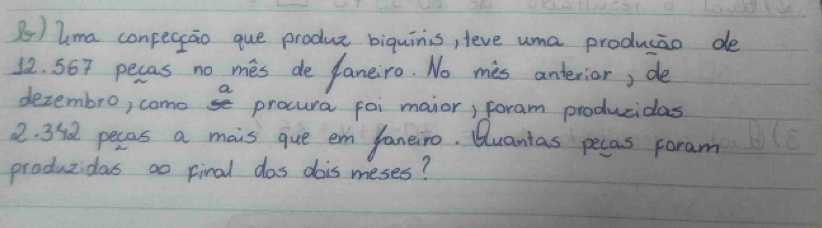 b) Uma confecção que produz biquínis, teve uma produção de
12.567 peças no mês de janeiro. No mês anterior, de
dezembro, como a procura foi maior, foram produzidas
2.342 peças a mais que em janeiro. Quantas peças foram
produzidas ao final dos dois meses?